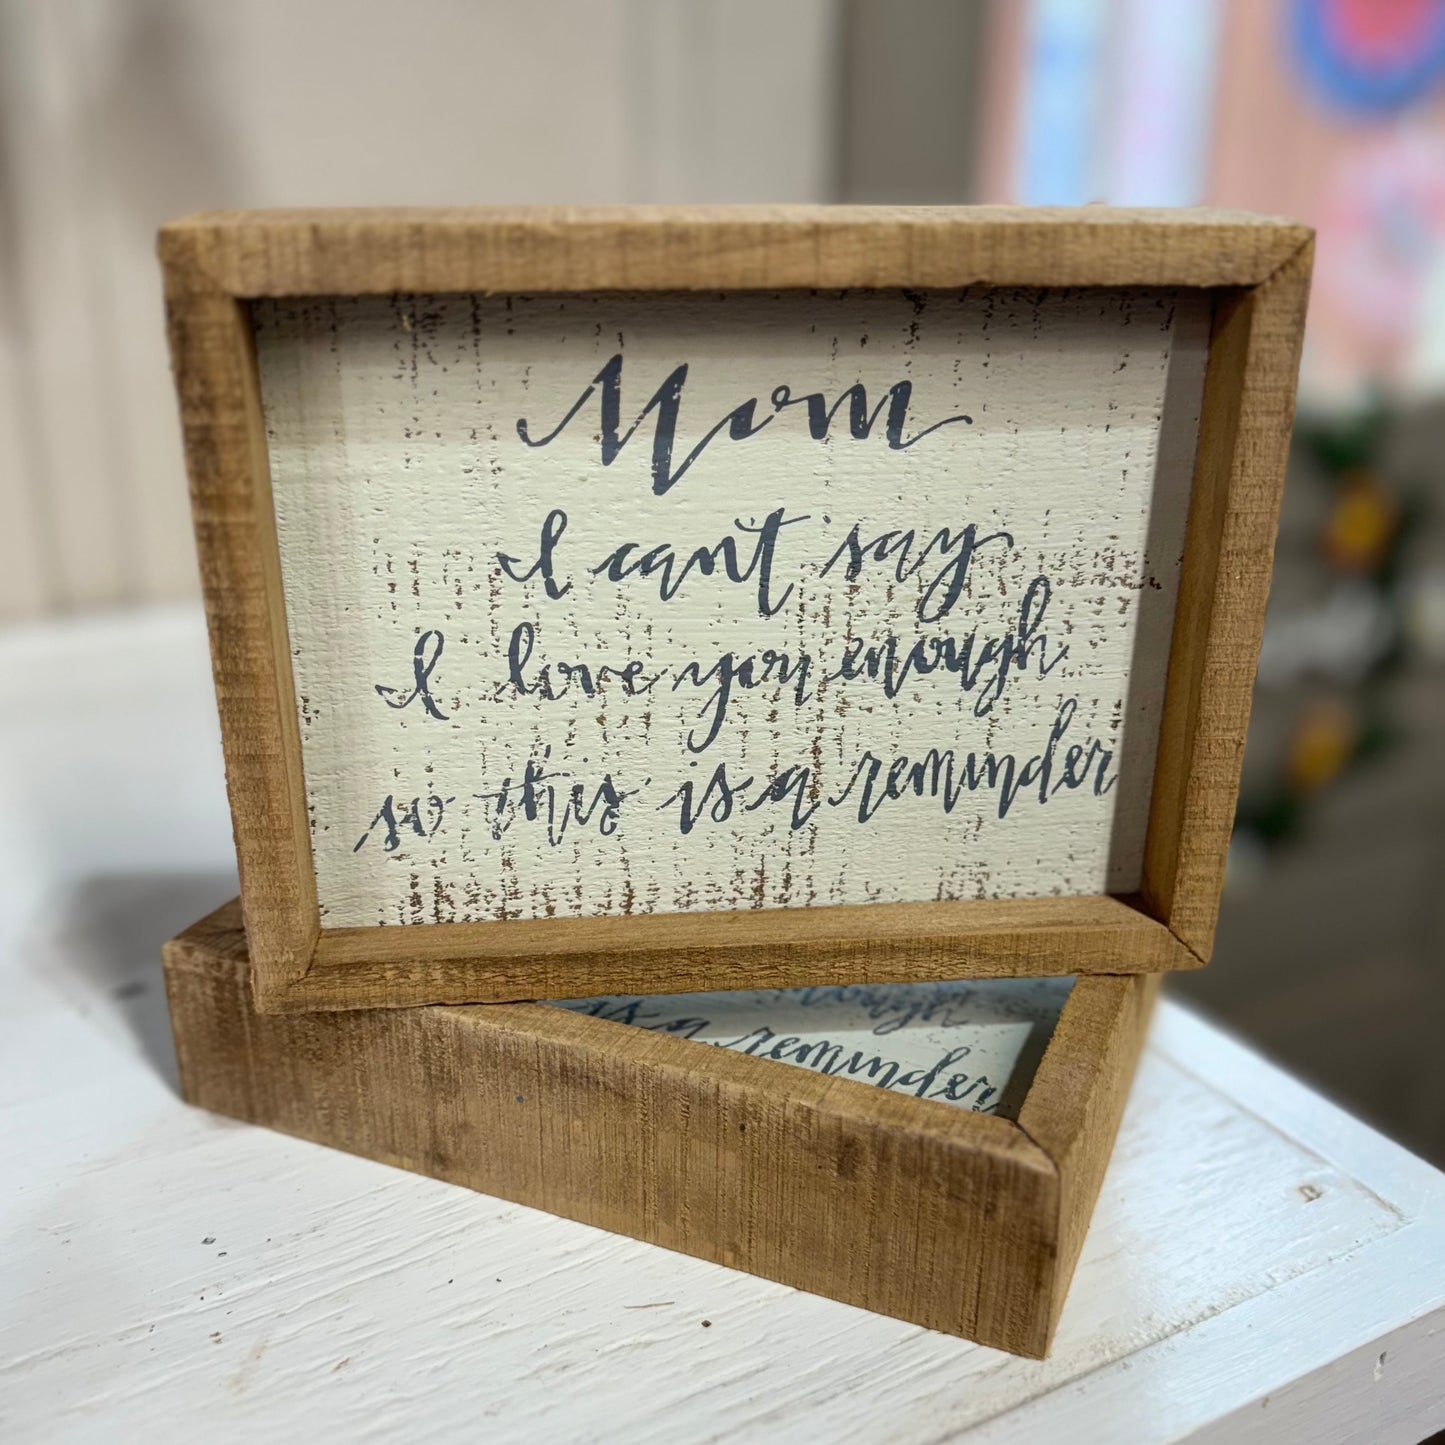 Mom
I can't say
I love you enough
so this is a reminder
enough
is a reminder